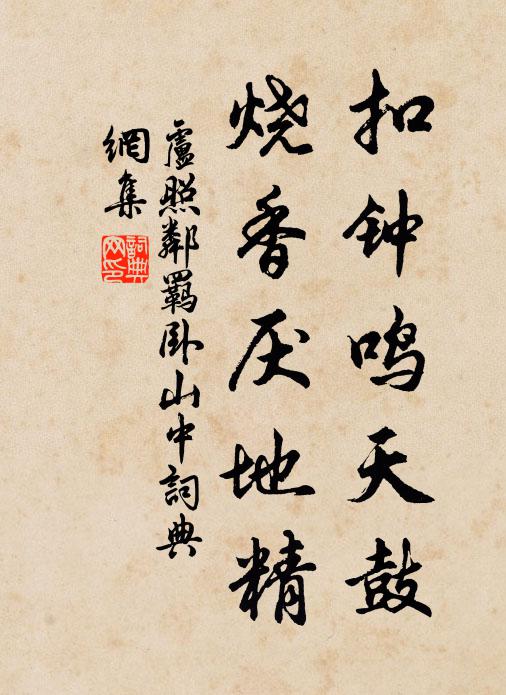 扣钟鸣天鼓
烧香厌地精
盧照鄰羈臥山中詞典
網集
詞典
网印